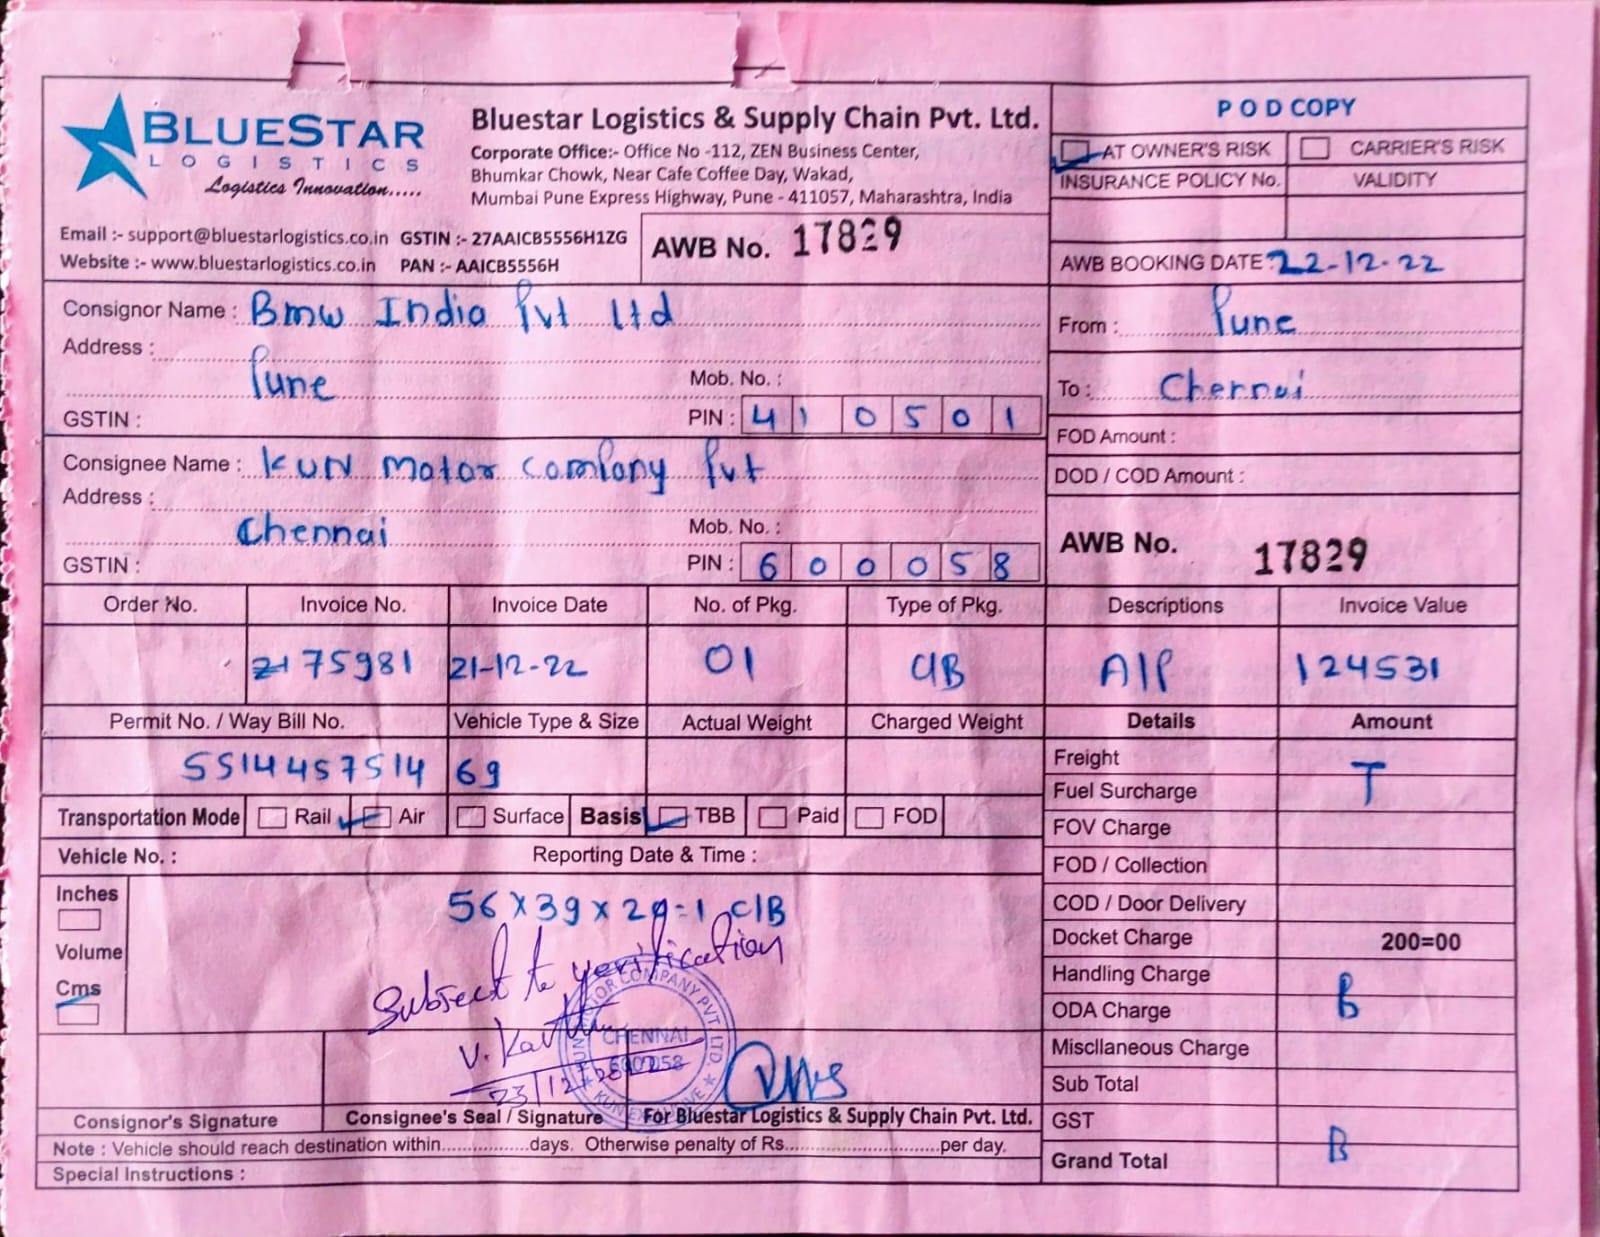 BLUESTAR
LOGISTICS
Logistics Innovation.....
Bluestar Logistics & Supply Chain Pvt. Ltd.
Corporate Office:- Office No -112, ZEN Business Center,
Bhumkar Chowk, Near Cafe Coffee Day, Wakad,
Mumbai Pune Express Highway, Pune - 411057, Maharashtra, India
Email :- support@bluestarlogistics.co.in GSTIN :- 27AAICB5556H1ZG
Website :- www.bluestarlogistics.co.in PAN :- AAICB5556H
AWB No. 17829
POD COPY
AT OWNER'S RISK CARRIER'S RISK
INSURANCE POLICY No. VALIDITY
AWB BOOKING DATE : 22-12-22
Consignor Name : Bmw India Pvt Ltd
Address :
Pune Mob. No. :
GSTIN : PIN : 410501
From : Pune
To : Chennai
FOD Amount :
DOD / COD Amount :
Consignee Name : KUN Motor Company Pvt
Address :
Chennai Mob. No. :
GSTIN : PIN : 600058
AWB No. 17829
Order No. Invoice No. Invoice Date No. of Pkg. Type of Pkg. Descriptions Invoice Value
2175981 21-12-22 01 C/B A/P 124531
Permit No. / Way Bill No. Vehicle Type & Size Actual Weight Charged Weight Details Amount
5514457514 69
Transportation Mode Rail Air Surface Basis TBB Paid FOD
Vehicle No. : Reporting Date & Time :
Inches
Volume
Cms
56 x 39 x 29=1 C/B
Subject to verification
V. Karthi
23/12/2022
KUN MOTOR COMPANY PVT. LTD.
CHENNAI
600058
KUN EXCLUSIVE
Consignor's Signature Consignee's Seal / Signature For Bluestar Logistics & Supply Chain Pvt. Ltd.
Note : Vehicle should reach destination within.................days. Otherwise penalty of Rs..............................per day.
Special Instructions :
Freight T
Fuel Surcharge
FOV Charge
FOD / Collection
COD / Door Delivery
Docket Charge 200=00
Handling Charge B
ODA Charge
Miscllaneous Charge
Sub Total
GST B
Grand Total